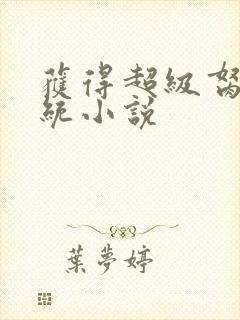 獲得超級
統小說
葉夢婷